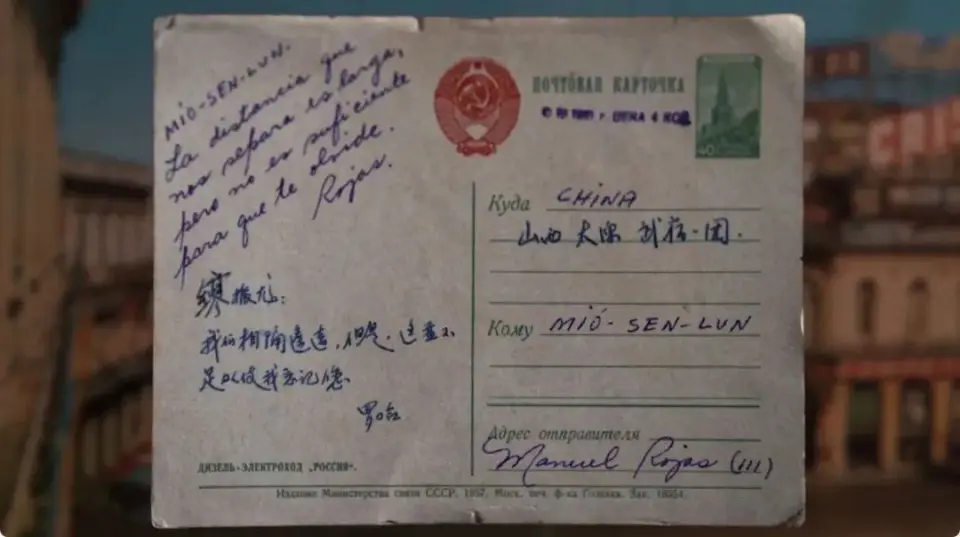 MIÓ-SEN-LUN.
La distancia que
nos separa es larga,
pero no es suficiente
para que te olvide.
Rojas.
缪振龙:
我们相隔遥远,但是,这并不
足以使我忘记您.
罗哈
ДИЗЕЛЬ-ЭЛЕКТРОХОД „РОССИЯ“.
ПОЧТОВАЯ КАРТОЧКА
1961 г ЦЕНА 4 КОП.
40
Куда CHINA
山西 大
Кому MIÓ-SEN-LUN
Адрес отправителя
Manuel Rojas (III)
Издание Министерства связи СССР. 1957. Моск. печ. ф-ка Гознака. Зак.
CRIS